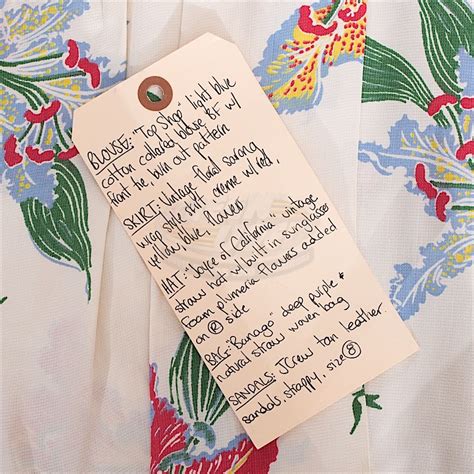 BLOUSE: "Top Shop" light blue
cotton collared blouse BF w/
front tie, burn out pattern
SKIRT: Vintage floral sarong
wrap style skirt creme w/red,
yellow blue, flowers
HAT: "Joyce of California" vintage
straw hat w/ built in sunglasses
Foam plumeria flowers added
on R side
BAG: "Banago" deep purple &
natural straw woven bag
SANDALS: JCrew tan leather
sandals, strappy, size 8